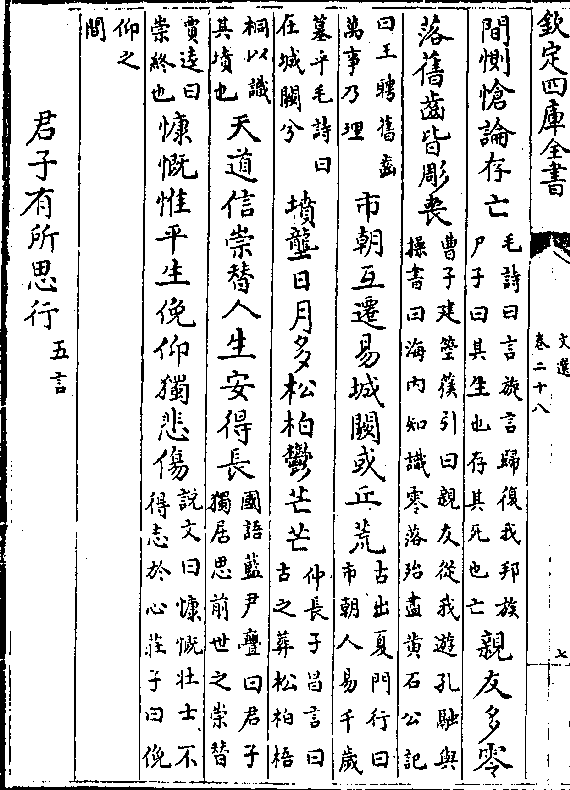 欽定四庫全書
文選
卷二十八
七
間惻愴論存亡
毛詩曰言旋言歸復我邦族
尸子曰其生也存其死也亡
親友多零
落舊齒皆彫喪
曹子建箜篌引曰親友從我遊孔融與
操書曰海内知識零落殆盡黄石公記
曰王聘舊齒
萬事乃理
市朝互遷易城闕或丘荒
古出夏門行曰
市朝人易千歲
墓平毛詩曰
在城闕兮
墳壟日月多松柏鬱芒芒
仲長子昌言曰
古之葬松柏梧
桐以識
其墳也
天道信崇替人生安得長
國語藍尹亹曰君子
獨居思前世之崇替
賈逵曰
崇終也
慷慨惟平生俛仰獨悲傷
說文曰慷慨壯士不
得志於心莊子曰俛
仰之
間
君子有所思行
五言